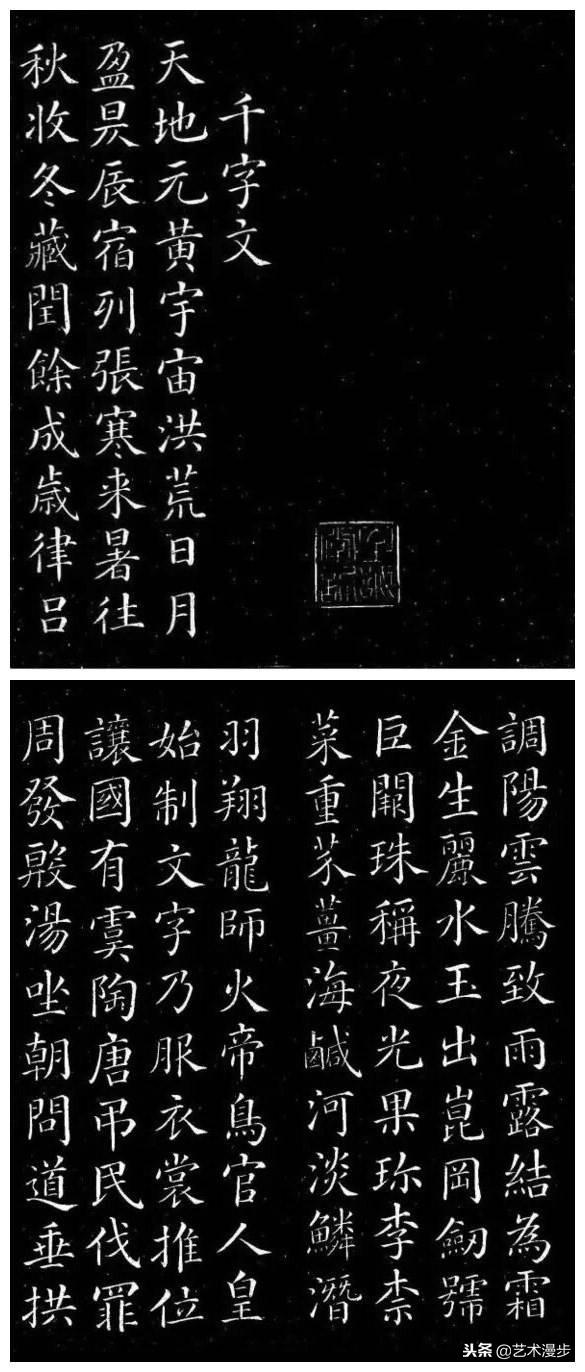 千字文
天地元黄宇宙洪荒日月
盈昃辰宿列張寒来暑往
秋收冬藏閏餘成歲律吕
調陽雲騰致雨露結為霜
金生麗水玉出崑岡劒號
巨闕珠稱夜光果珎李柰
菜重芥薑海鹹河淡鱗潛
羽翔龍師火帝鳥官人皇
始制文字乃服衣裳推位
讓國有虞陶唐吊民伐罪
周發殷湯坐朝問道垂拱
头条 @艺术漫步